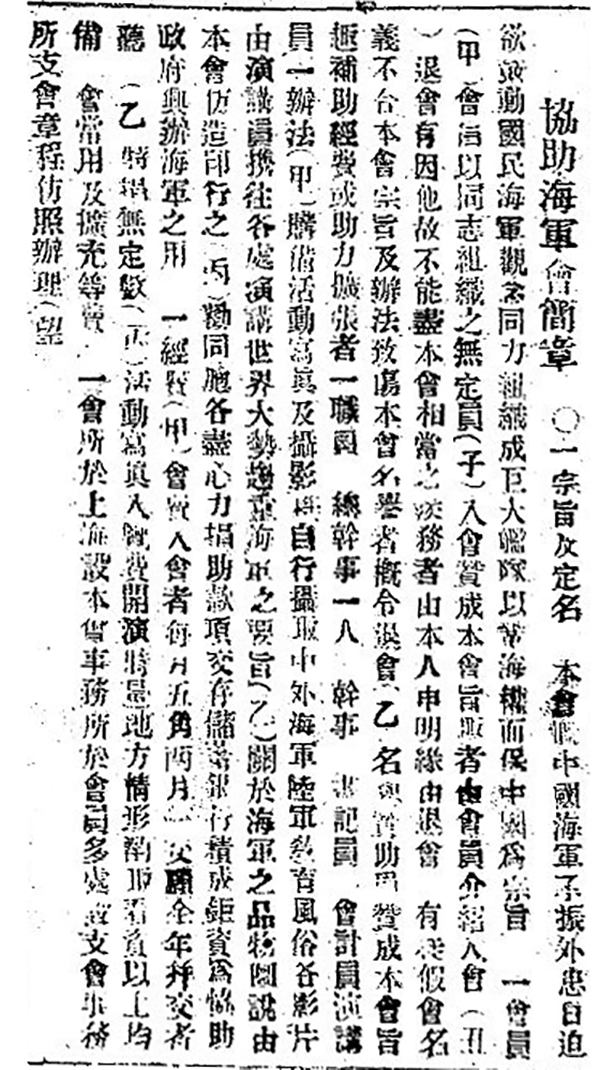 協助海軍會簡章　〇一宗旨及定名　本會慨中國海軍不振外患日迫
欲鼓動國民海軍觀念同力組織成巨大艦隊以奪海權而保中國爲宗旨　一會員
（甲）會員以同志組織之無定員（子）入會贊成本會旨趣者由會員介紹入會（丑
）退會有因他故不能盡本會相當之義務者由本人申明緣由退會　有業假會名
義不合本會宗旨及辦法致傷本會名譽者概令退會（乙）名譽贊助員贊成本會旨
趣補助經費或助力擴張者一職員　總幹事一人　幹事　書記員　會計員演講
員一辦法（甲）購備活動寫真及攝影　自行攝取中外海軍陸軍教育風俗各影片
由演講員攜往各處演講世界大勢趨重海軍之要旨（乙）關於海軍之品物圖說由
本會仿造印行之（丙）勸同胞各盡心力捐助款項交存儲蓄銀行積成鉅資爲協助
政府興辦海軍之用　一經費（甲）會費入會者每月五角兩月一交願全年并交者
聽（乙）特捐無定數（丙）活動寫真入覽費開演時量地方情形酌取若資以上均
備　會常用及擴充等費　一會所於上海設本會事務所於會員多處設支會事務
所支會章程仿照辦理（望